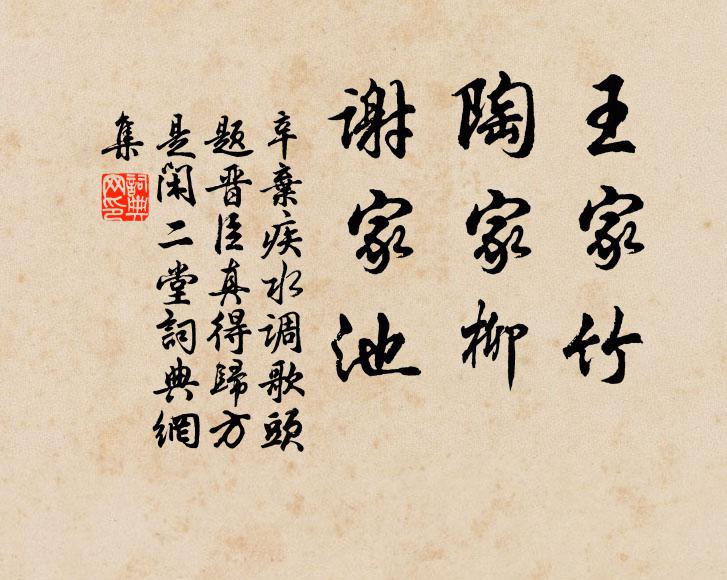 王家竹
陶家柳
谢家池
辛棄疾水调歌頭
题晋臣真得歸方
是闲二堂詞典網
集
詞典網印